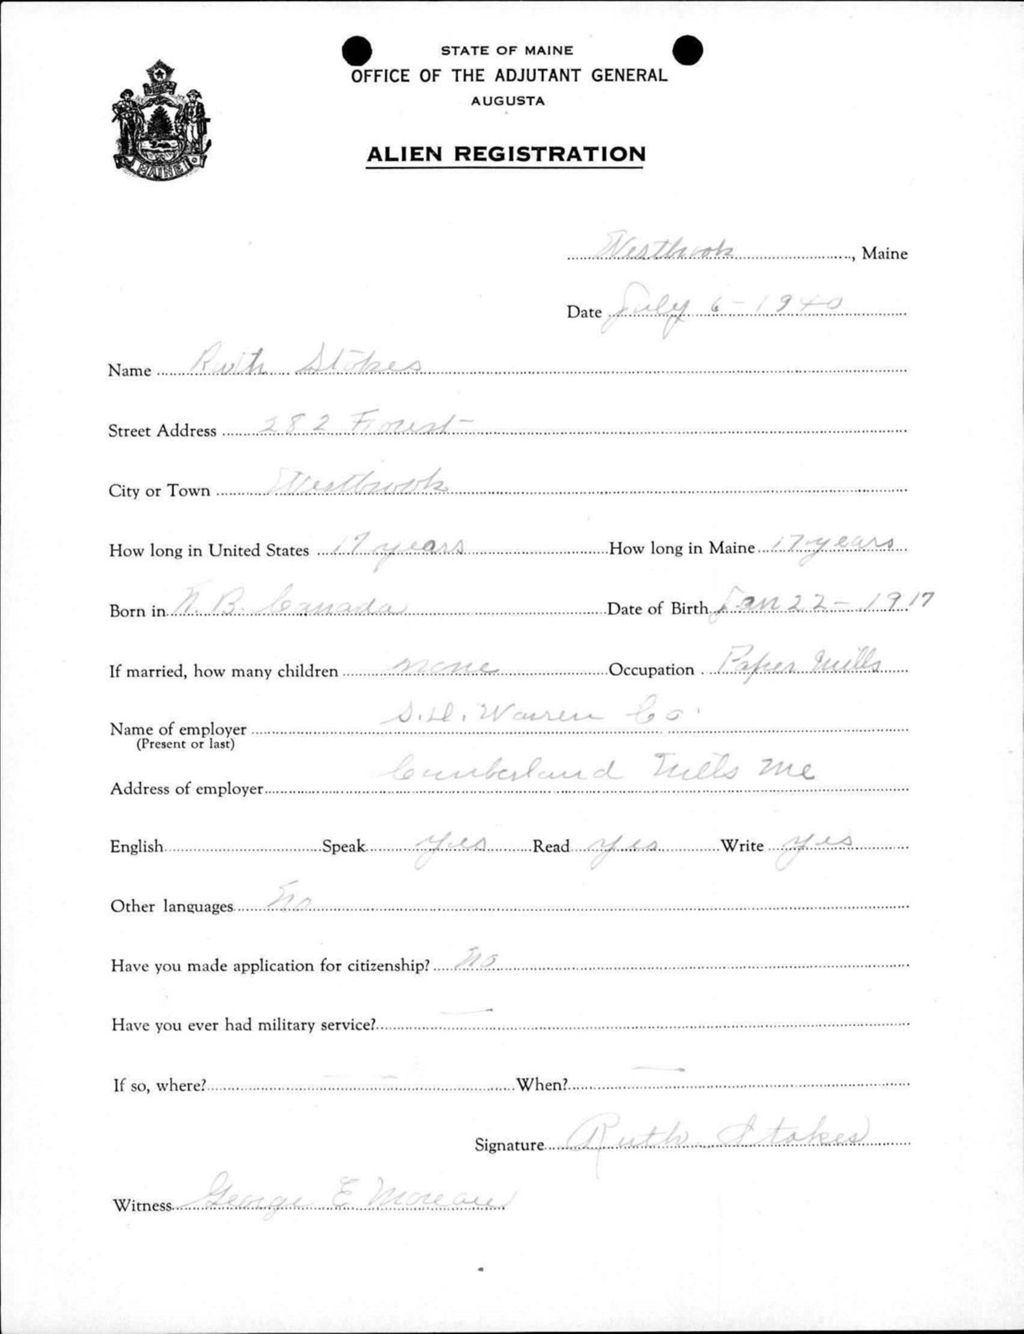 STATE OF MAINE
OFFICE OF THE ADJUTANT GENERAL
AUGUSTA
MAINE
ALIEN REGISTRATION
Westbrook, Maine
Date July 6 - 1940
Name Ruth Stokes
Street Address 282 Forest
City or Town Westbrook
How long in United States 17 years How long in Maine 17 years
Born in N. B. Canada Date of Birth Jan 22 - 1917
If married, how many children none Occupation Paper Mills
Name of employer S. D. Warren Co.
(Present or last)
Address of employer Cumberland Mills Me
English Speak yes Read yes Write yes
Other languages No
Have you made application for citizenship? No
Have you ever had military service? —
If so, where? — — When? —
Signature Ruth Stokes
Witness George E Moreau